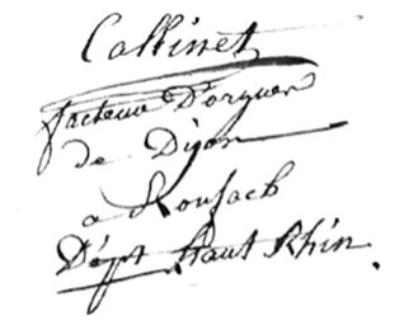 Callinet
facteur D'orgues
de Dijon
a Roufach
Dépt haut Rhin.